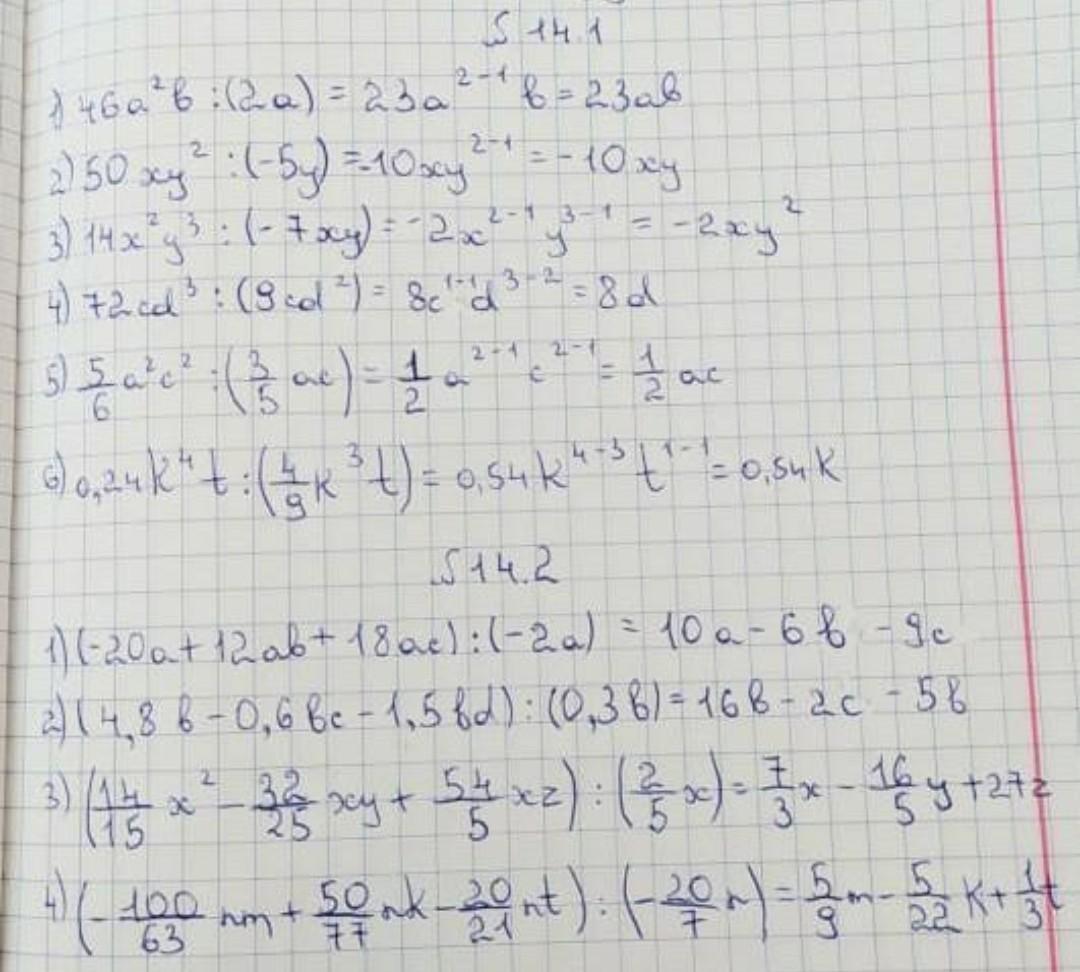 § 14.1
1) 46a²b : (2a) = 23a²⁻¹b = 23ab
2) 50xy² : (-5y) = -10xy²⁻¹ = -10xy
3) 14x²y³ : (-7xy) = -2x²⁻¹y³⁻¹ = -2xy²
4) 72cd³ : (9cd²) = 8c¹⁻¹d³⁻² = 8d
5) 5/6 a²c² : (3/5 ac) = 1/2 a²⁻¹c²⁻¹ = 1/2 ac
6) 0,24k⁴t : (4/9 k³t) = 0,54k⁴⁻³t¹⁻¹ = 0,54k
§ 14.2
1) (-20a + 12ab + 18ac) : (-2a) = 10a - 6b - 9c
2) (4,8b - 0,6bc - 1,5bd) : (0,3b) = 16b - 2c - 5b
3) (14/15 x² - 32/25 xy + 54/5 xz) : (2/5 x) = 7/3 x - 16/5 y + 27z
4) (-100/63 nm + 50/77 nk - 20/21 nt) : (-20/7 n) = 5/9 m - 5/22 k + 1/3 t